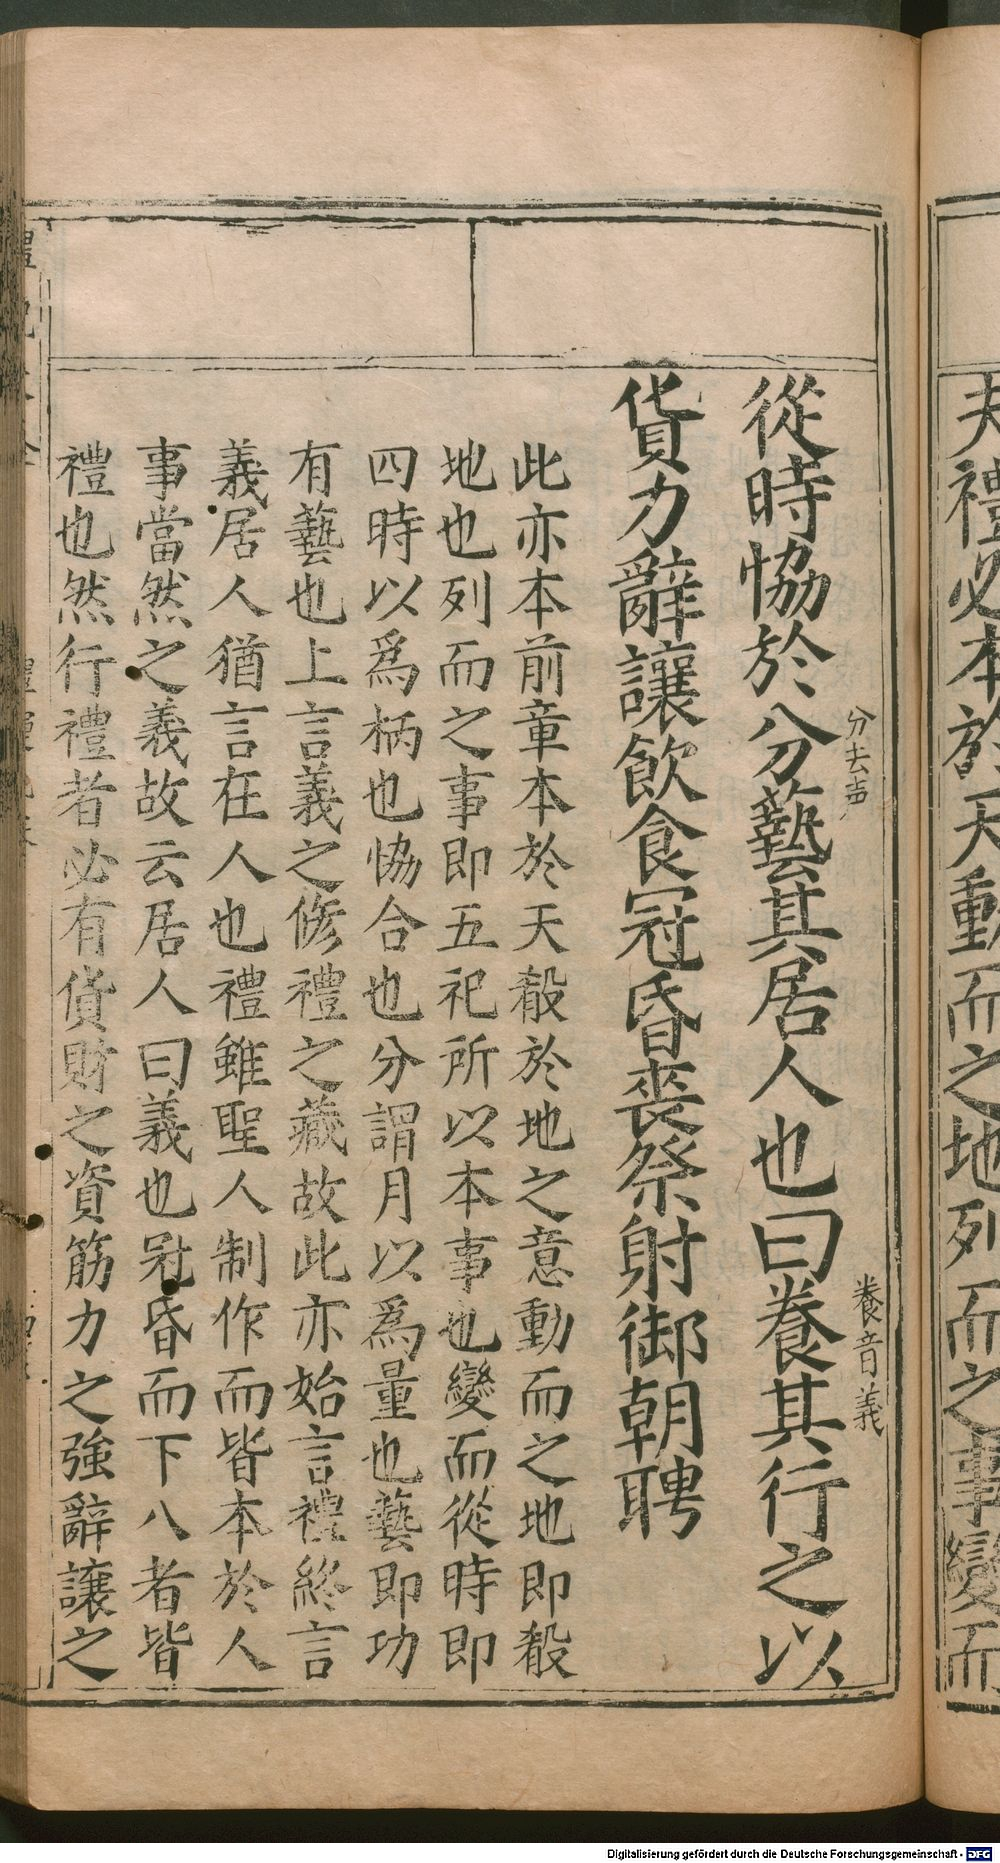 夫禮必本於天動而之地列而之事變而
從時協於分藝其居人也曰養其行之以
分去声
養音義
貨力辭讓飲食冠昏喪祭射御朝聘
此亦本前章本於天殽於地之意動而之地即殽
地也列而之事即五祀所以本事也變而從時即
四時以爲柄也協合也分謂月以爲量也藝即功
有藝也上言義之修禮之藏故此亦始言禮終言
義居人猶言在人也禮雖聖人制作而皆本於人
事當然之義故云居人曰義也冠昏而下八者皆
禮也然行禮者必有貨財之資筋力之強辭讓之
Digitalisierung gefördert durch die Deutsche Forschungsgemeinschaft - DFG